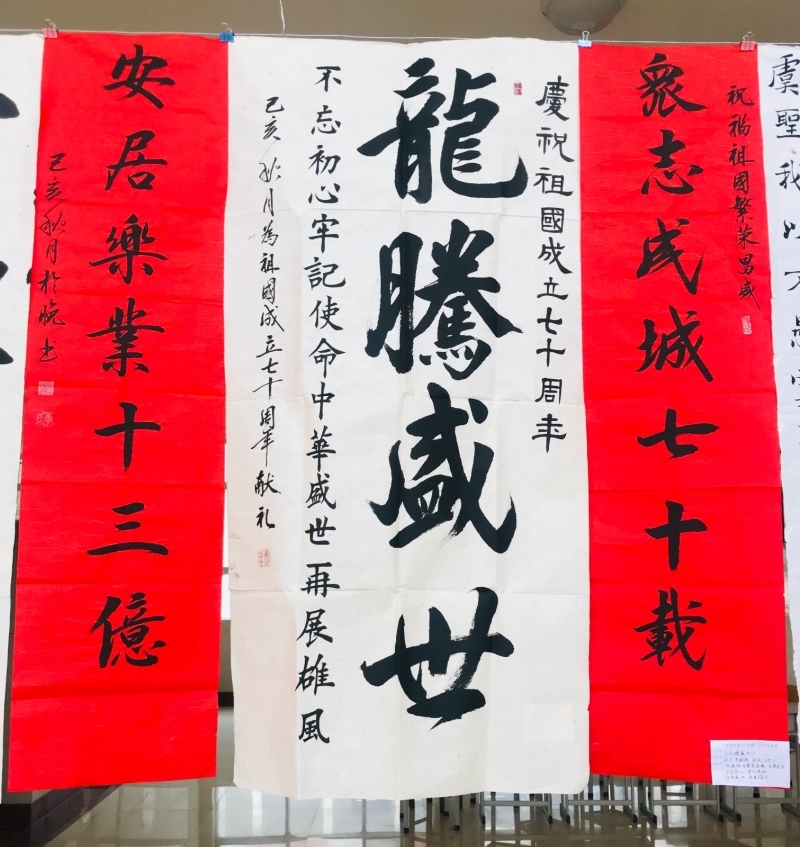 虞聖我以
祝福祖國繁荣昌盛
眾志成城七十載
慶祝祖國成立七十周年
龍騰盛世
不忘初心牢記使命中華盛世再展雄風
己亥秋月為祖國成立七十周年献礼
安居樂業十三億
己亥秋月於皖书